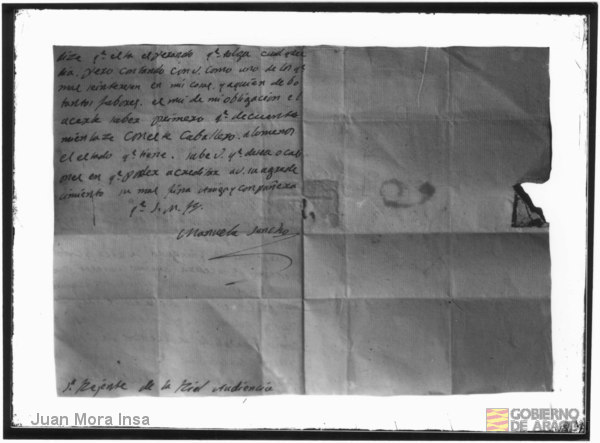 q.e esta esperando q.e salga cualq.r
dia. pero contando con V. como uno de los q.e
mas se interesan en mi casa, y a quien debo
tantos fabores, es mui de mi obligación el
acerle saber primero q.e decuente
mi enlaze con este Caballero, a lo menos
el estado q.e tiene. sabe V. q.e desea oca
siones en q.e poder acreditar a V. su agrade
cimiento su mas fina Amiga y compañera
q.e S. M. B.
Manuela Sancho
S.r Rejente de la Real Audiencia
Juan Mora Insa
GOBIERNO
DE ARAGON